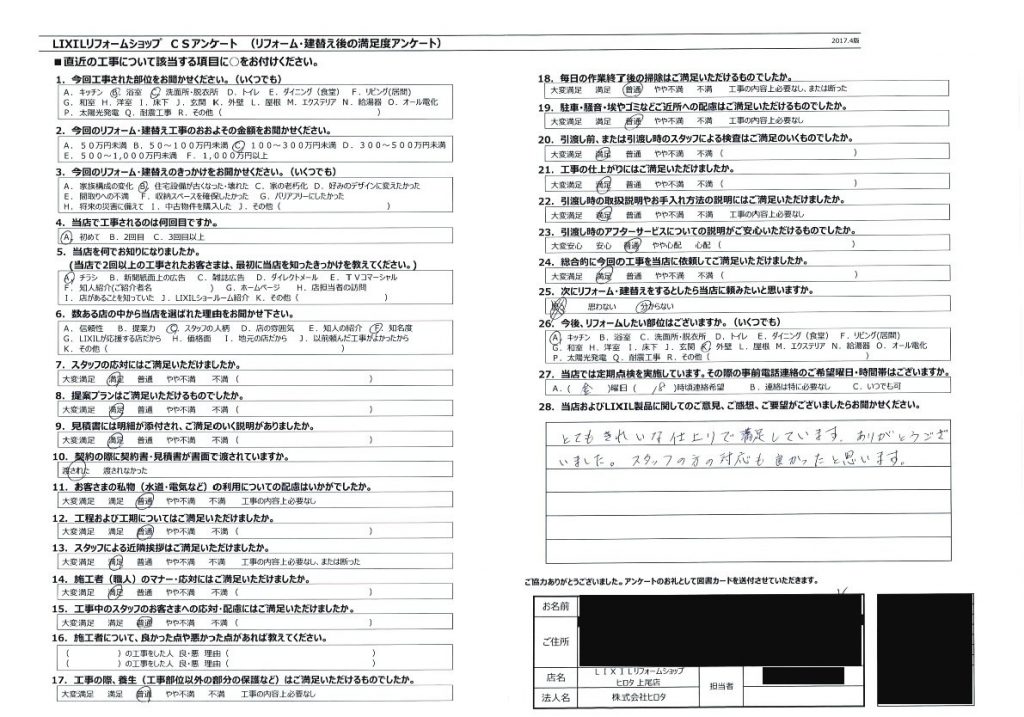 LIXILリフォームショップ CSアンケート (リフォーム・建替え後の満足度アンケート)
2017.4版
■直近の工事について該当する項目に○をお付けください。
1. 今回工事された部位をお聞かせください。(いくつでも)
A. キッチン B. 浴室 C. 洗面所・脱衣所 D. トイレ E. ダイニング(食堂) F. リビング(居間)
G. 和室 H. 洋室 I. 床下 J. 玄関 K. 外壁 L. 屋根 M. エクステリア N. 給湯器 O. オール電化
P. 太陽光発電 Q. 耐震工事 R. その他( )
2. 今回のリフォーム・建替え工事のおおよその金額をお聞かせください。
A. 50万円未満 B. 50~100万円未満 C. 100~300万円未満 D. 300~500万円未満
E. 500~1,000万円未満 F. 1,000万円以上
3. 今回のリフォーム・建替えのきっかけをお聞かせください。(いくつでも)
A. 家族構成の変化 B. 住宅設備が古くなった・壊れた C. 家の老朽化 D. 好みのデザインに変えたかった
E. 間取りへの不満 F. 収納スペースを確保したかった G. バリアフリーにしたかった
H. 将来の災害に備えて I. 中古物件を購入した J. その他( )
4. 当店で工事されるのは何回目ですか。
A. 初めて B. 2回目 C. 3回目以上
5. 当店を何でお知りになりましたか。
(当店で2回以上の工事されたお客さまは、最初に当店を知ったきっかけを教えてください。)
A. チラシ B. 新聞紙面上の広告 C. 雑誌広告 D. ダイレクトメール E. TVコマーシャル
F. 知人紹介(ご紹介者名 ) G. ホームページ H. 店担当者の訪問
I. 店があることを知っていた J. LIXILショールーム紹介 K. その他( )
6. 数ある店の中から当店を選ばれた理由をお聞かせ下さい。
A. 信頼性 B. 提案力 C. スタッフの人柄 D. 店の雰囲気 E. 知人の紹介 F. 知名度
G. LIXILが応援する店だから H. 価格面 I. 地元の店だから J. 以前頼んだ工事がよかったから
K. その他( )
7. スタッフの応対にはご満足いただけましたか。
大変満足 満足 普通 やや不満 不満 ( )
8. 提案プランはご満足いただけるものでしたか。
大変満足 満足 普通 やや不満 不満 ( )
9. 見積書には明細が添付され、ご満足のいく説明がありましたか。
大変満足 満足 普通 やや不満 不満 ( )
10. 契約の際に契約書・見積書が書面で渡されていますか。
渡された 渡されなかった
11. お客さまの私物(水道・電気など)の利用についての配慮はいかがでしたか。
大変満足 満足 普通 やや不満 不満 工事の内容上必要なし
12. 工程および工期についてはご満足いただけましたか。
大変満足 満足 普通 やや不満 不満 ( )
13. スタッフによる近隣挨拶はご満足いただけましたか。
大変満足 満足 普通 やや不満 不満 工事の内容上必要なし、または断った
14. 施工者(職人)のマナー・応対にはご満足いただけましたか。
大変満足 満足 普通 やや不満 不満 ( )
15. 工事中のスタッフのお客さまへの応対・配慮にはご満足いただけましたか。
大変満足 満足 普通 やや不満 不満 ( )
16. 施工者について、良かった点や悪かった点があれば教えてください。
( )の工事をした人 良・悪 理由( )
( )の工事をした人 良・悪 理由( )
17. 工事の際、養生(工事部位以外の部分の保護など)はご満足いただけるものでしたか。
大変満足 満足 普通 やや不満 不満 工事の内容上必要なし
18. 毎日の作業終了後の掃除はご満足いただけるものでしたか。
大変満足 満足 普通 やや不満 不満 工事の内容上必要なし、または断った
19. 駐車・騒音・埃やゴミなどご近所への配慮はご満足いただけるものでしたか。
大変満足 満足 普通 やや不満 不満 工事の内容上必要なし
20. 引渡し前、または引渡し時のスタッフによる検査はご満足のいくものでしたか。
大変満足 満足 普通 やや不満 不満 ( )
21. 工事の仕上がりにはご満足いただけましたか。
大変満足 満足 普通 やや不満 不満 ( )
22. 引渡し時の取扱説明やお手入れ方法の説明にはご満足いただけましたか。
大変満足 満足 普通 やや不満 不満 工事の内容上必要なし
23. 引渡し時のアフターサービスについての説明がご安心いただけるものでしたか。
大変安心 安心 普通 やや心配 心配 ( )
24. 総合的に今回の工事を当店に依頼してご満足いただけましたか。
大変満足 満足 普通 やや不満 不満 ( )
25. 次にリフォーム・建替えをするとしたら当店に頼みたいと思いますか。
思わない 分からない
26. 今後、リフォームしたい部位はございますか。(いくつでも)
A. キッチン B. 浴室 C. 洗面所・脱衣所 D. トイレ E. ダイニング(食堂) F. リビング(居間)
G. 和室 H. 洋室 I. 床下 J. 玄関 K. 外壁 L. 屋根 M. エクステリア N. 給湯器 O. オール電化
P. 太陽光発電 Q. 耐震工事 R. その他( )
27. 当店では定期点検を実施しています。その際の事前電話連絡のご希望曜日・時間帯はございますか。
A. ( 金 )曜日 ( 18 )時頃連絡希望 B. 連絡は特に必要なし C. いつでも可
28. 当店およびLIXIL製品に関してのご意見、ご感想、ご要望がございましたらお聞かせください。
とてもきれいな仕上りで満足しています。ありがとうござ
いました。スタッフの方の対応も良かったと思います。
ご協力ありがとうございました。アンケートのお礼として図書カードを送付させていただきます。
お名前
ご住所
店名 LIXILリフォームショップ
ヒロタ 上尾店 担当者
法人名 株式会社ヒロタ